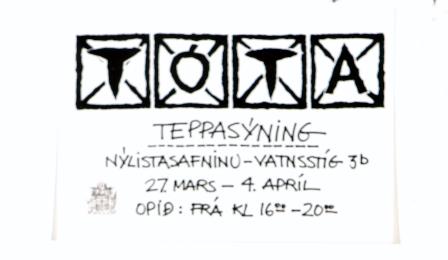 TÓTA
TEPPASÝNING
NÝLISTASAFNINU - VATNSSTÍG 3b
27. MARS - 4. APRÍL
OPIÐ: FRÁ KL 16⁰⁰ - 20⁰⁰